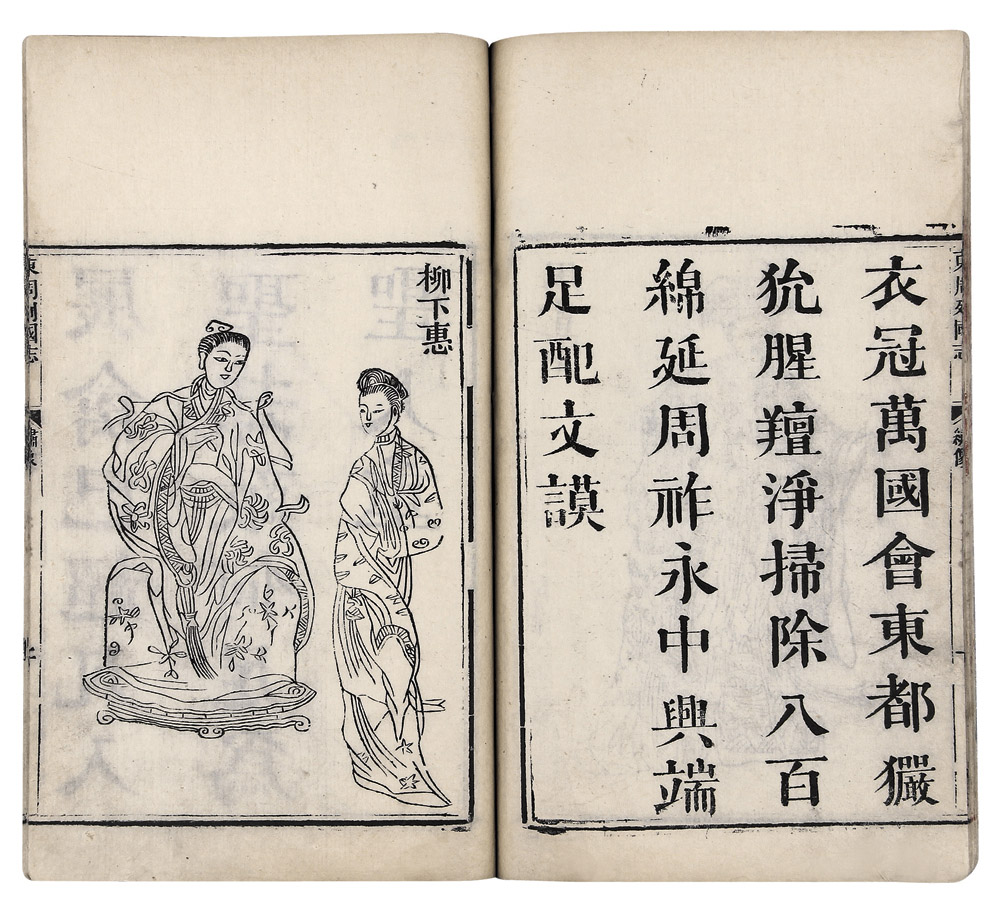 東周列國志
繡像
衣冠萬國會東都玁
狁腥羶淨掃除八百
綿延周祚永中興端
足配文謨
柳下惠
東周列國志
繡像